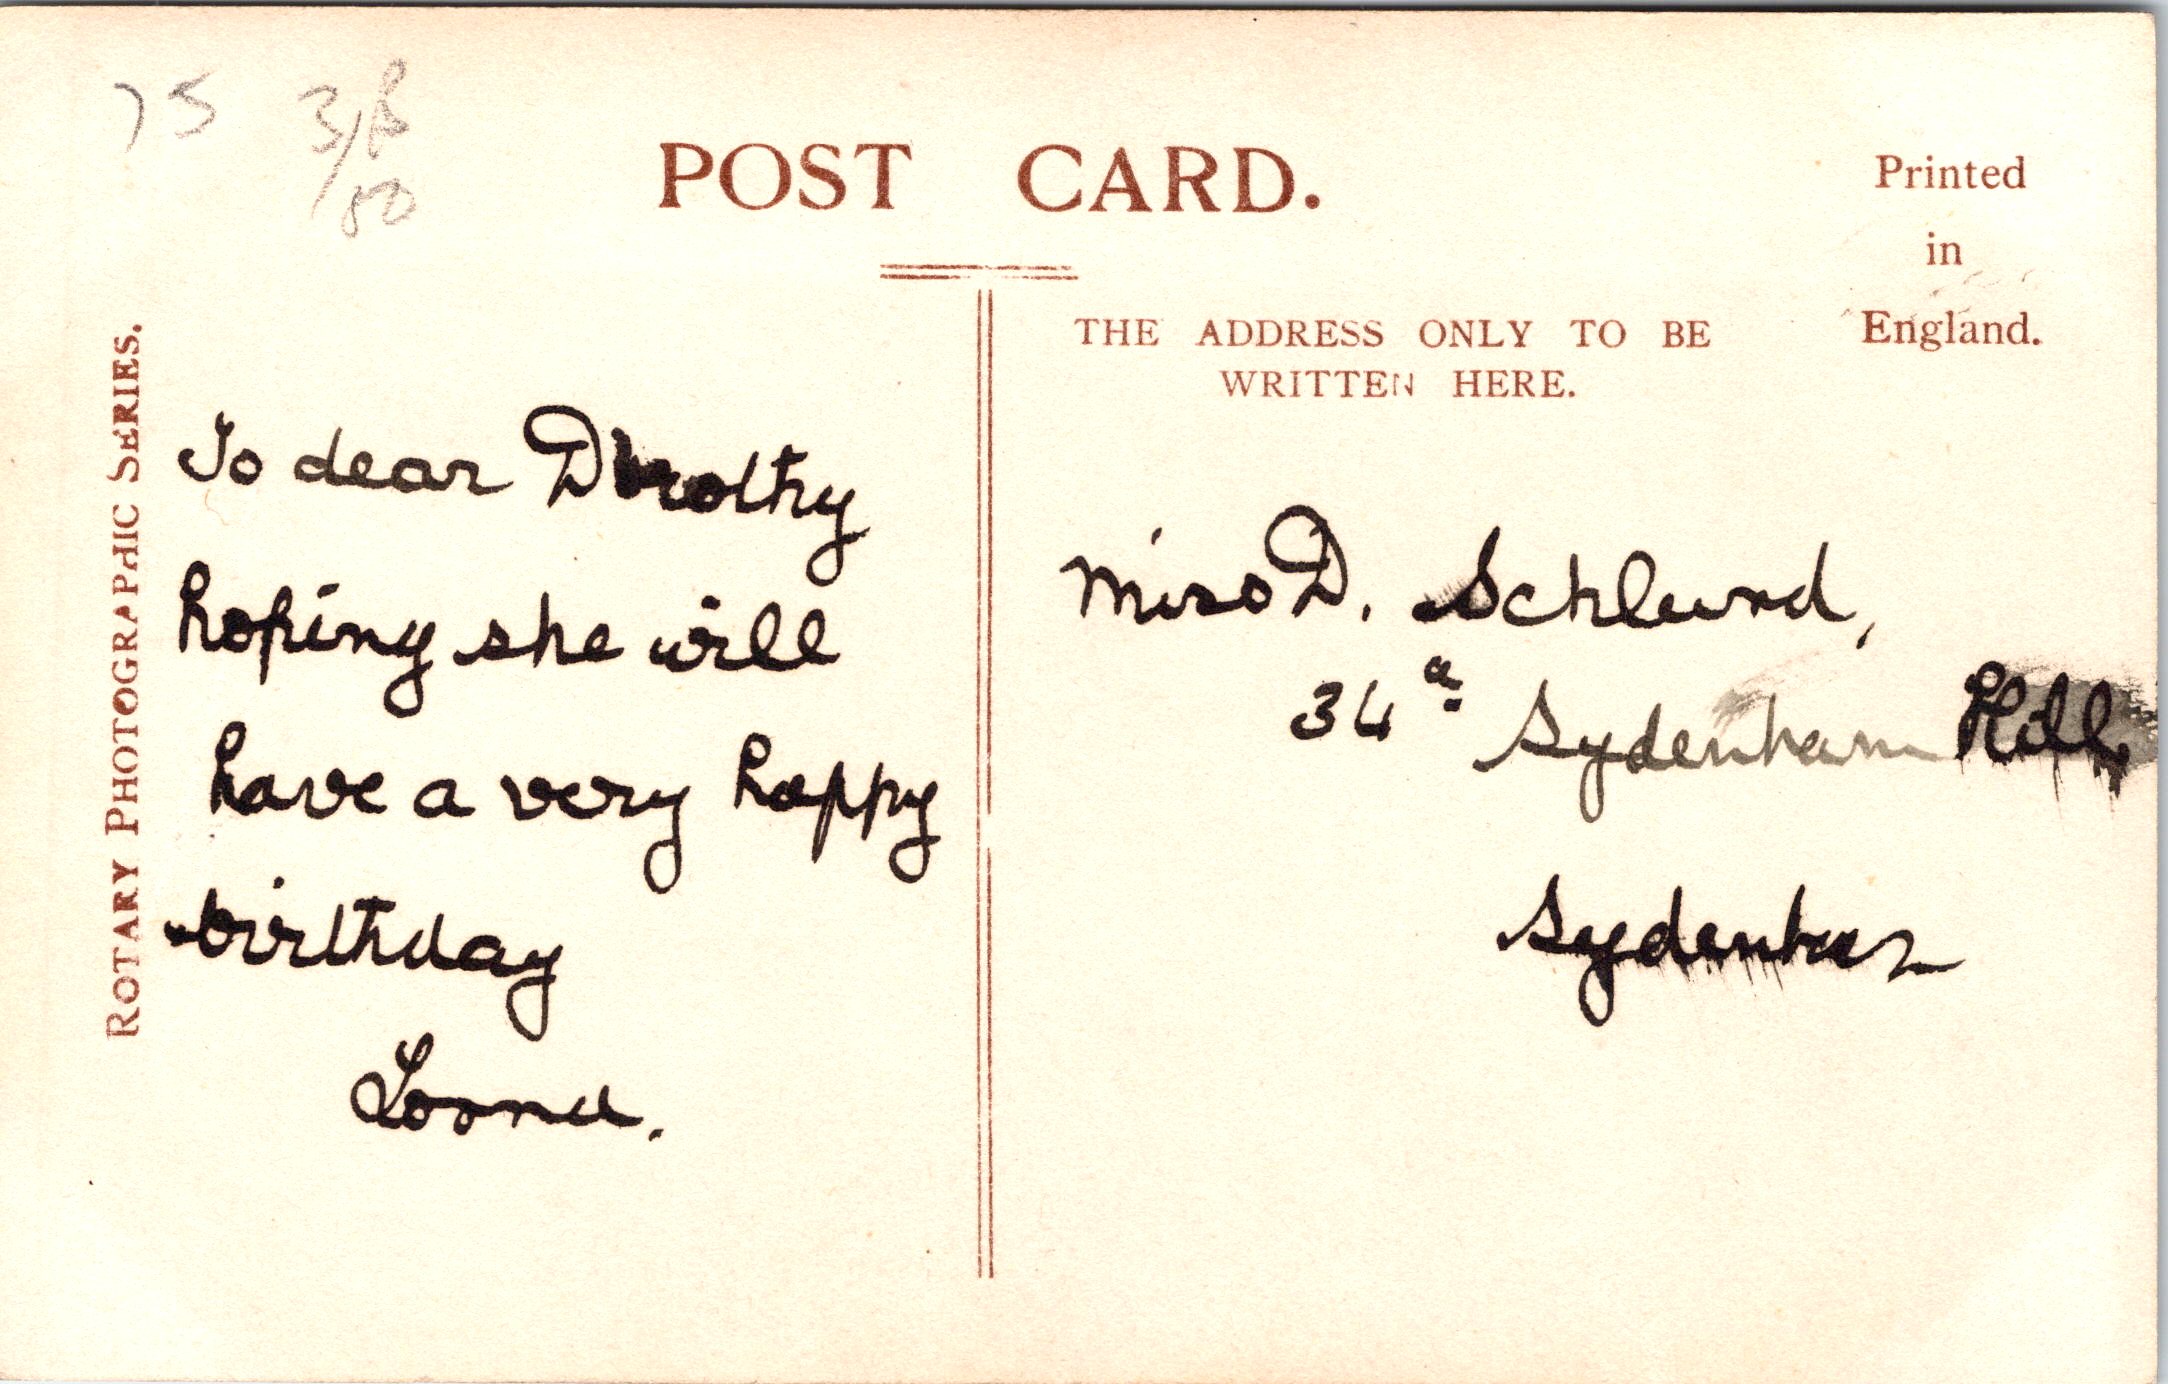 75 3/6
80
POST CARD.
Printed
in
England.
THE ADDRESS ONLY TO BE
WRITTEN HERE.
ROTARY PHOTOGRAPHIC SERIES.
To dear Dorothy
hoping she will
have a very happy
birthday
Loona.
Miss D. Schlund,
34a Sydenham Hill
Sydenham